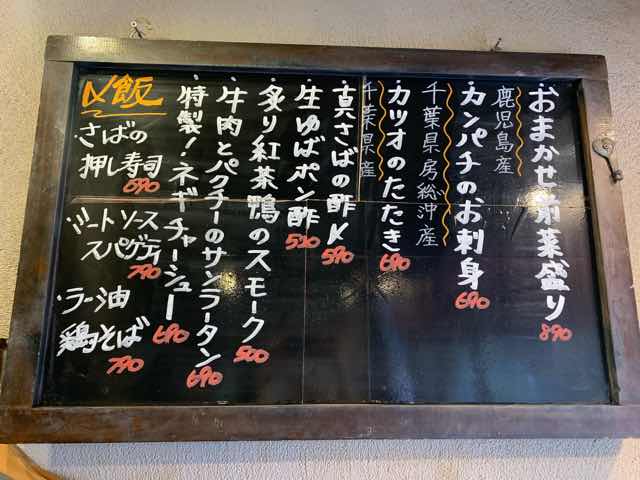 ・おまかせ前菜盛り
890
鹿児島産
・カンパチのお刺身
690
千葉県房総沖産
・カツオのたたき
690
千葉県産
・真さばの酢〆
590
・生ゆばポン酢
520
・炙り紅茶鴨のスモーク
500
・牛肉とパクチーのサンラータン
690
・特製!ネギチャーシュー
690
〆飯
・さばの
押し寿司
690
・ミートソース
スパゲティ
790
・ラー油
鶏そば
790